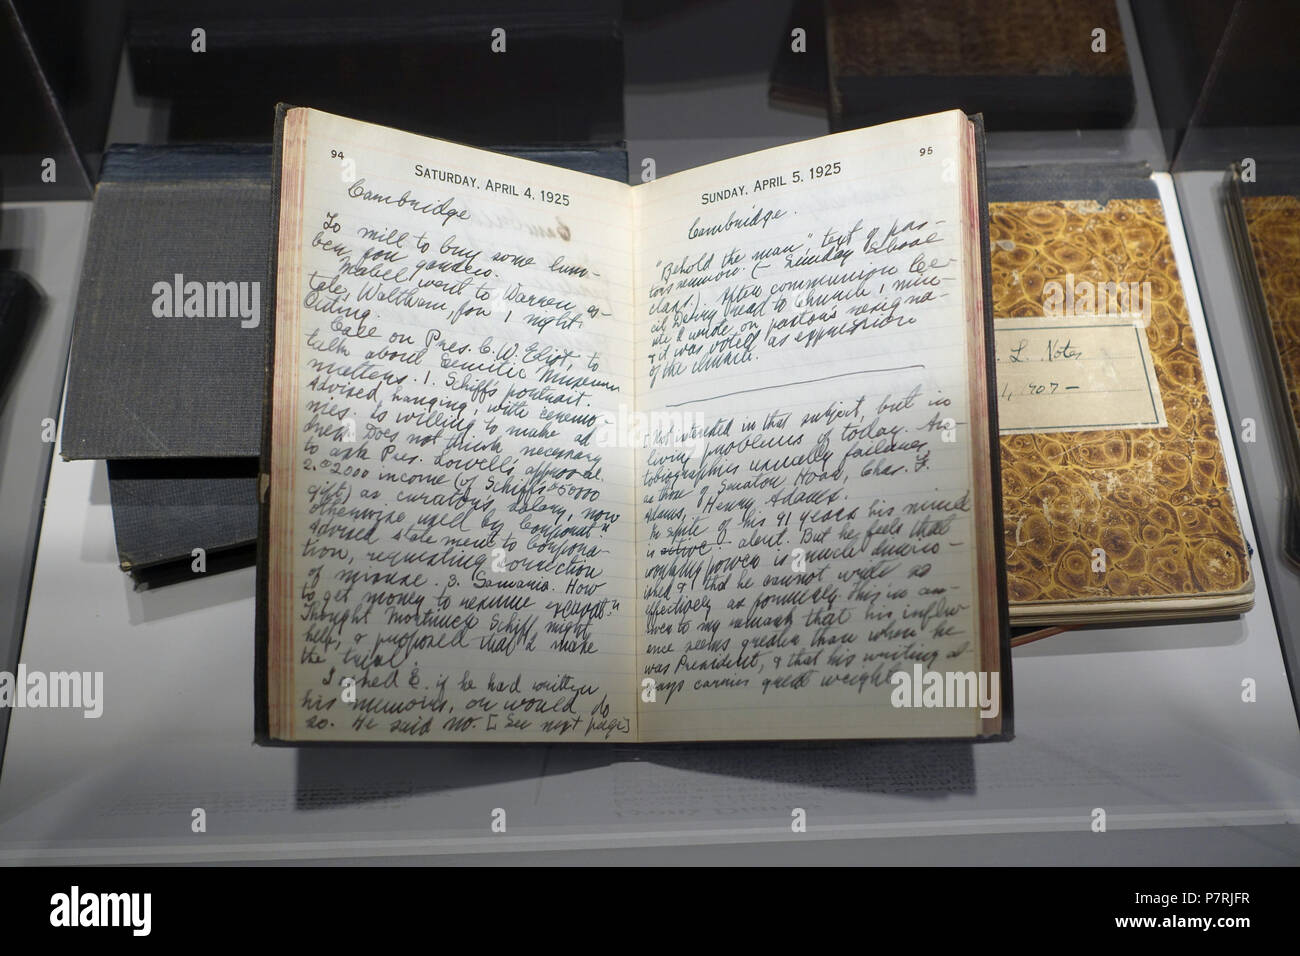 94
SATURDAY, APRIL 4, 1925
Cambridge
To mill to buy some lum-
ber for gazebo.
Mabel went to Warren es-
tate, Waltham, for 1 night's
Outing.
Call on Pres. C. W. Eliot, to
talk about Semitic Museum
matters. 1. Schiff's portrait.
Advised, hanging, with ceremo-
nies. Is willing to make ad-
dress. Does not think necessary
to ask Pres. Lowell's approval.
2. $2000 income (of Schiff's $50000
gift) as curator's salary, now
otherwise used by Corporat'n
Advised statement to Corpora-
tion, requesting correction
of misuse. 3. Samaria. How
to get money to resume excavat'n
Thought Mortimer Schiff might
help, & proposed that I make
the trial.
I asked E. if he had written
his memoirs, or would do
so. He said no. [See next page]
95
SUNDAY, APRIL 5, 1925
Cambridge.
"Behold the man", text of pas-
tor's sermon. (- Sunday School
class). After communion Ce-
cil Derry read to Church, min-
ute I wrote on pastor's resigna-
& it was voted as expression
of the church.
Not interested in that subject, but in
living problems of today. Au-
tobiographies usually failures,
as those of Senator Hoar, Chas. F.
Adams, Henry Adams.
In spite of his 91 years his mind
is active. alert. But he feels that
working power is much dimin-
ished & that he cannot write as
effectively as formerly. This in an-
swer to my remark that his influ-
ence seems greater than when he
was President, & that his writing al-
ways carries great weight.
L. Notes
1, 1907-
alamy
Image ID: P7RJFR
www.alamy.com